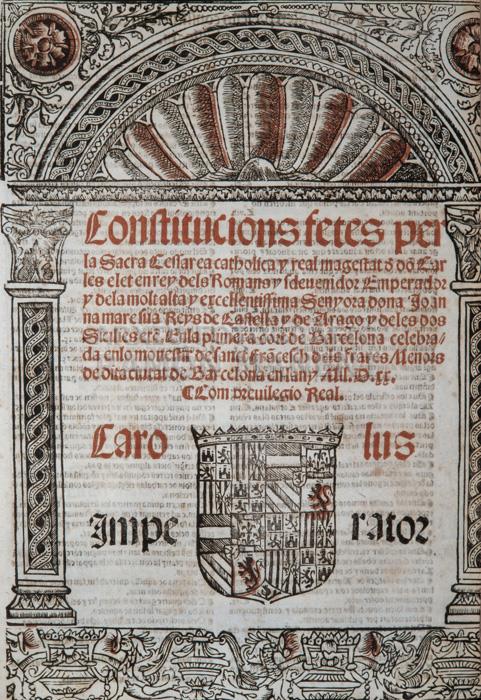 Constitucions fetes per
la Sacra Cessarea catholica y real magestat d dō Car
les elet en rey dels Romans y sdeuenidor Emperador
y dela molt alta y excellentissima Senyora dona Joan
na mare sua Reys de Castella y de Arago y deles dos
Sicilies etč. En la primera cort de Barcelona celebra-
da enlo monestir de sanct francesch dels frares Menors
de dita ciutat de Barcelona en lany Mil. D. xx.
Com preuilegio Real.
Caro lus
Impe rator